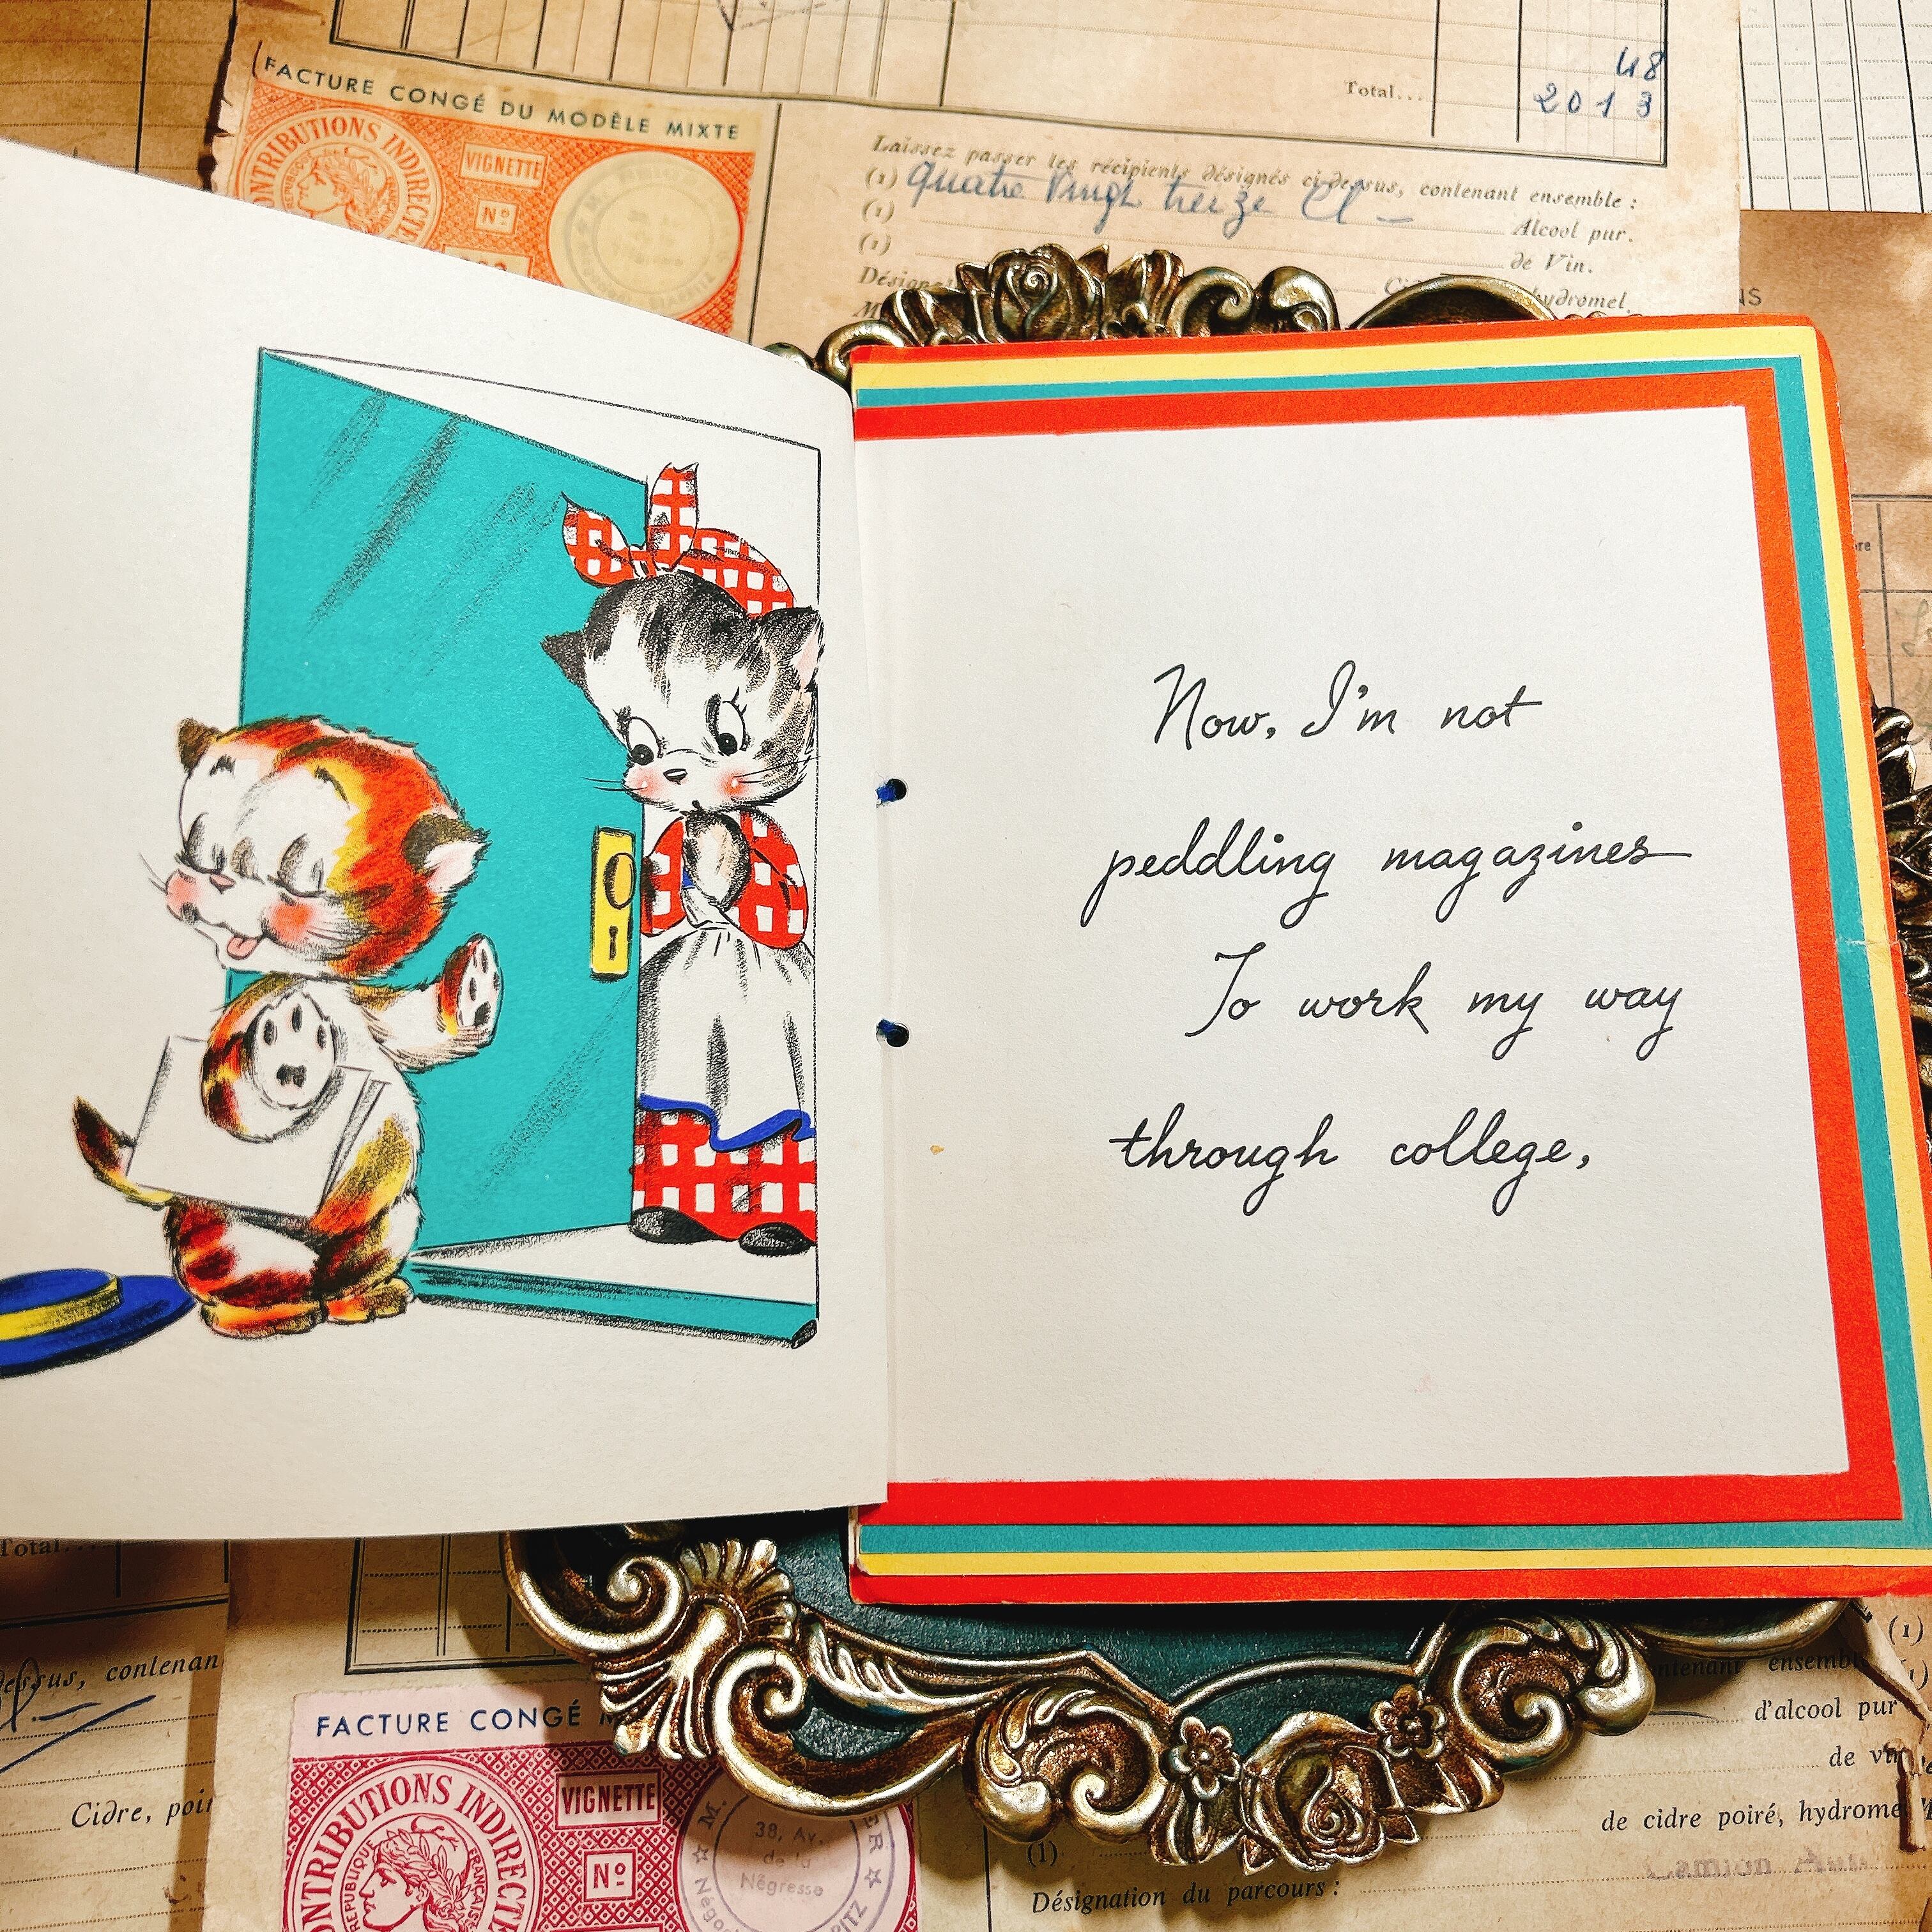 FACTURE CONGÉ DU MODÈLE MIXTE
CONTRIBUTIONS INDIRECTES
VIGNETTE
Nº
Total...
48
2013
Laissez passer les récipients désignés ci-dessus, contenant ensemble :
(1) Quatre Vingt treize Cl -
(1) Alcool pur.
(1) de Vin.
hydromel.
Now, I'm not
peddling magazines
To work my way
through college,
Total...
dessus, contenan
Cidre, poir
FACTURE CONGÉ
CONTRIBUTIONS INDIRECTE
RÉPUBLIQUE FRANÇAISE
VIGNETTE
Nº
M.
38, Av.
de la
Négresse
(1)
ntenant ensembl
(1)
d'alcool pur
de vin
de cidre poiré, hydrome
(1)
Désignation du parcours :